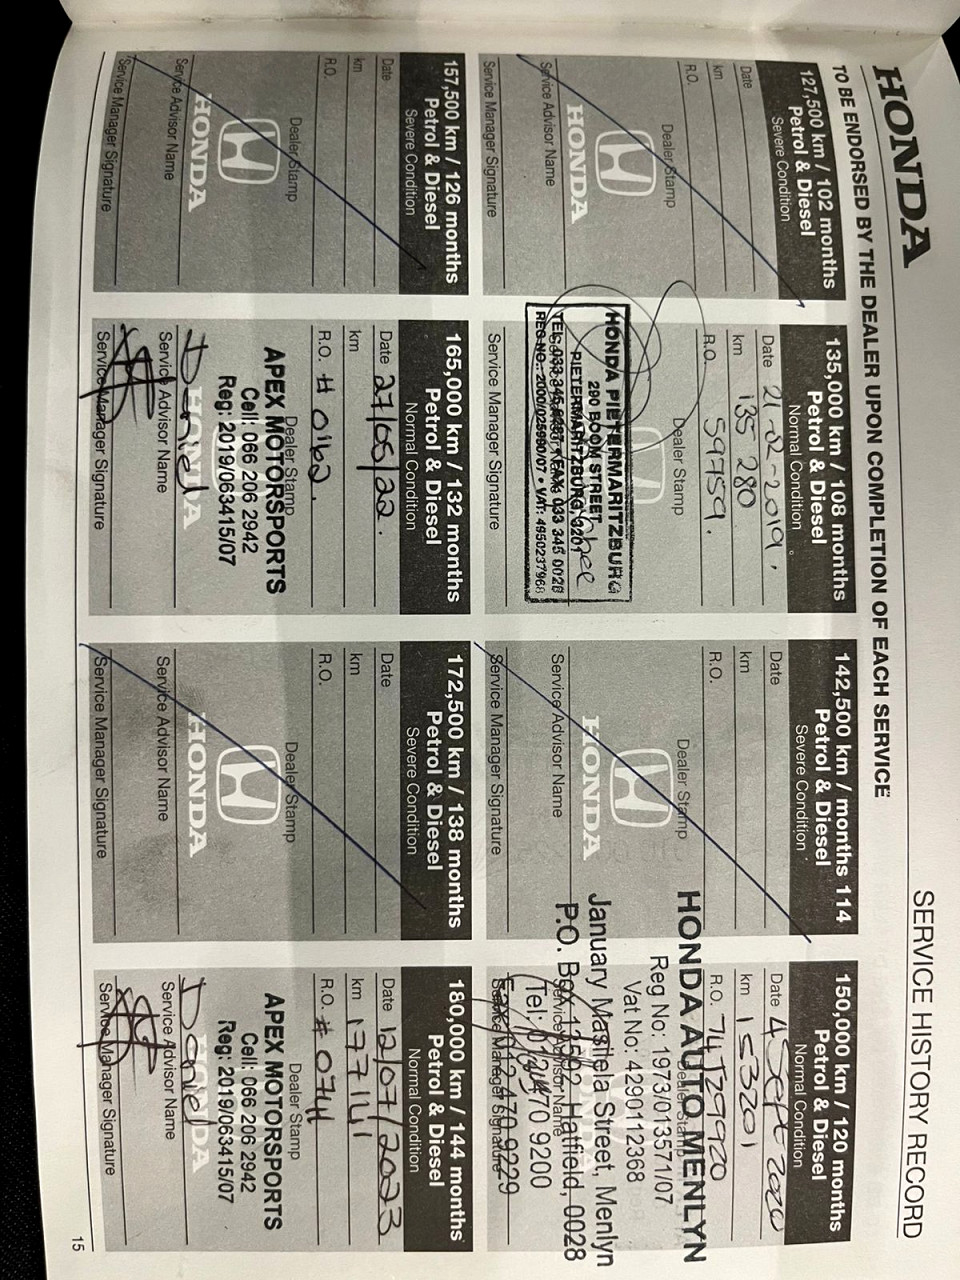 HONDA
SERVICE HISTORY RECORD
TO BE ENDORSED BY THE DEALER UPON COMPLETION OF EACH SERVICE
127,500 km / 102 months
Petrol & Diesel
Severe Condition
Date
km
R.O.
Dealer Stamp
HONDA
Service Advisor Name
Service Manager Signature
135,000 km / 108 months
Petrol & Diesel
Normal Condition
Date 21-02-2019.
km 135 280
R.O. 59759.
Dealer Stamp
HONDA PIETERMARITZBURG
290 BOOM STREET
PIETERMARITZBURG, 3201
TEL: 033 345 6287 • FAX: 033 345 0028
REG NO.: 2000/025980/07 • VAT: 4950237968
Service Manager Signature
142,500 km / months 114
Petrol & Diesel
Severe Condition
Date
km
R.O.
Dealer Stamp
HONDA
Service Advisor Name
Service Manager Signature
150,000 km / 120 months
Petrol & Diesel
Normal Condition
Date 4 Sept 2020
km 153201
R.O. 74729920
Dealer Stamp
HONDA AUTO MENLYN
Reg No: 1973/013571/07
Vat No: 4290112368
January Masilela Street, Menlyn
P.O. Box 13592, Hatfield, 0028
Service Advisor Name
Tel: 012 470 9200
Service Manager Signature
Fax: 012 470 9229
157,500 km / 126 months
Petrol & Diesel
Severe Condition
Date
km
R.O.
Dealer Stamp
HONDA
Service Advisor Name
Service Manager Signature
165,000 km / 132 months
Petrol & Diesel
Normal Condition
Date 27/05/22.
km
R.O. # 0162.
Dealer Stamp
APEX MOTORSPORTS
Cell: 066 206 2942
Reg: 2019/063415/07
HONDA
Daniel
Service Advisor Name
Service Manager Signature
172,500 km / 138 months
Petrol & Diesel
Severe Condition
Date
km
R.O.
Dealer Stamp
HONDA
Service Advisor Name
Service Manager Signature
180,000 km / 144 months
Petrol & Diesel
Normal Condition
Date 12/07/2023
km 177111
R.O. # 0741
Dealer Stamp
APEX MOTORSPORTS
Cell: 066 206 2942
Reg: 2019/063415/07
Daniel
Service Advisor Name
Service Manager Signature
15